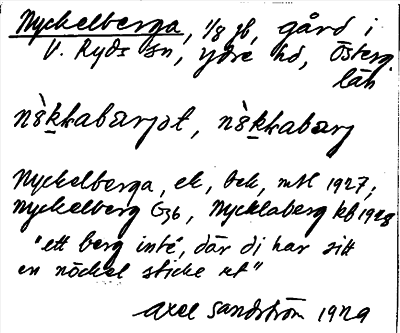 Nyckelberga, 1/8 jb, gård i
V. Ryds sn, Ydre hd, Österg.
län
nèkkabærjət, nèkkabærj
Nyckelberga, ek, bek, mtl 1927;
Nyckelberg G36, Nycklaberg kb 1928
"ett berg inté, där di har sitt
en nöckel sticke ut"
Axel Sandström 1929